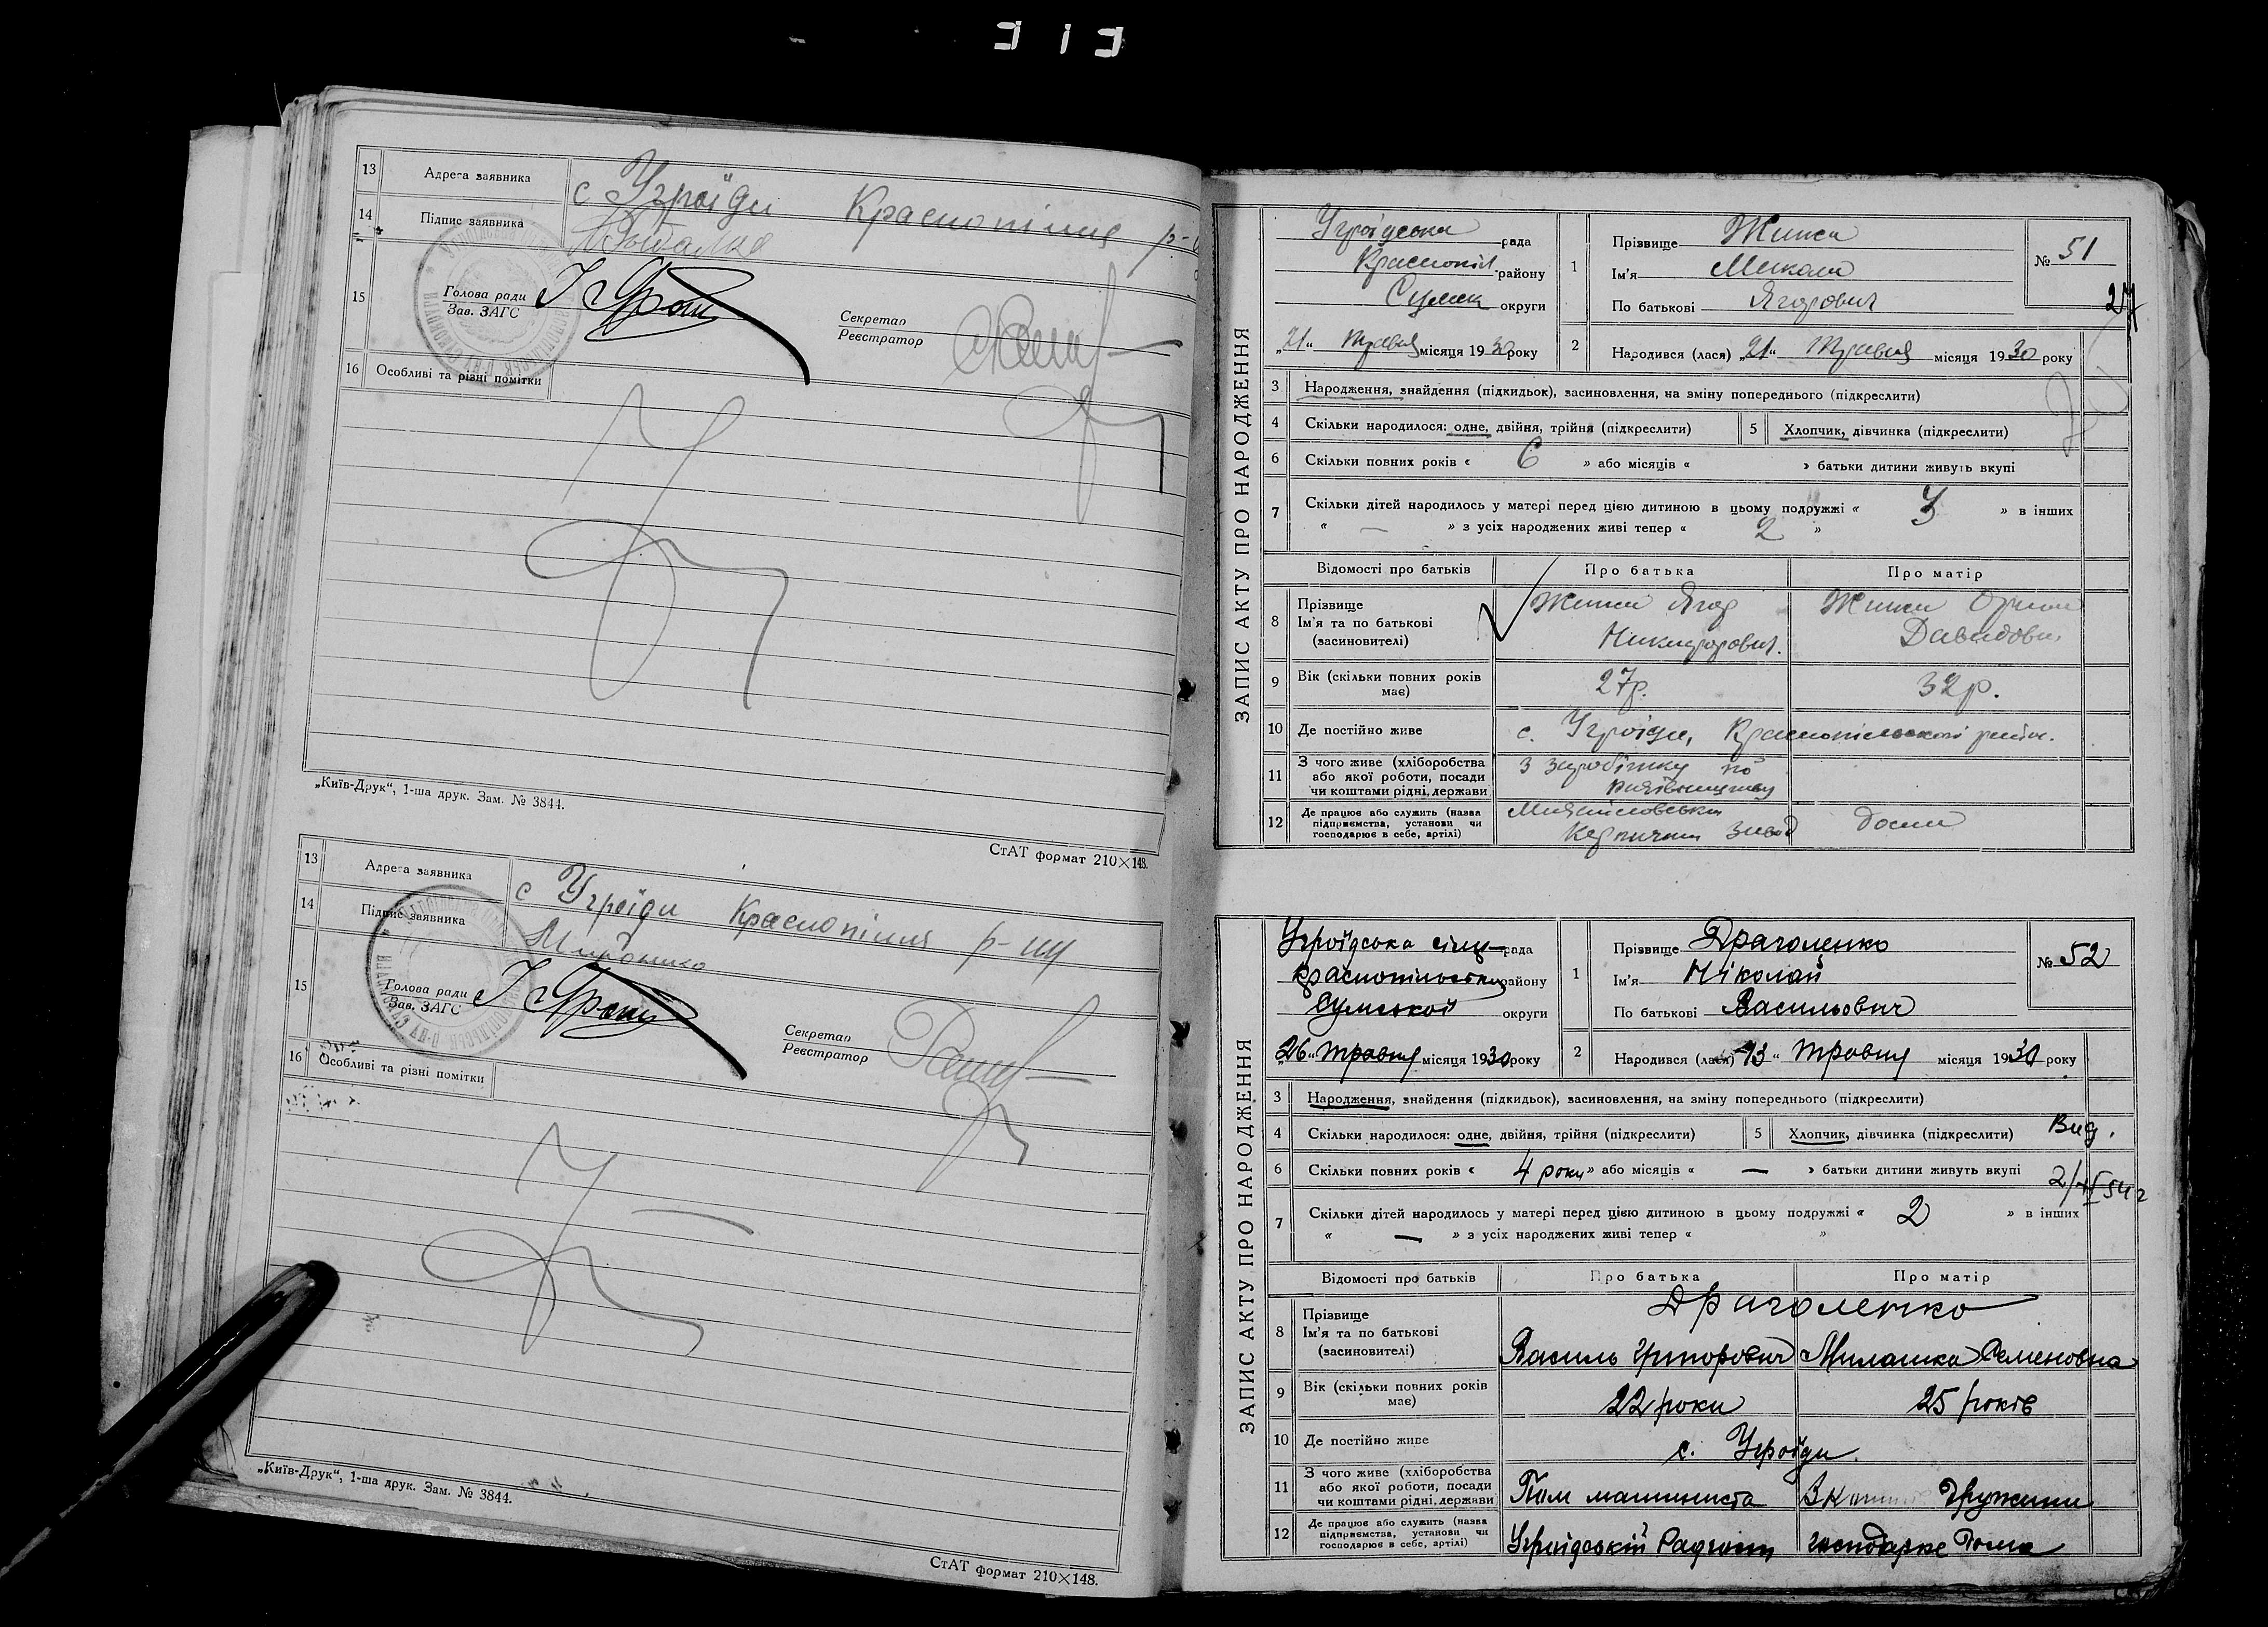 13 Адреса заявника с Угроїди Краснопілля р-
14 Підпис заявника
15 Голова ради
Зав. ЗАГС
Секретар
Реєстратор
16 Особливі та різні помітки
„Київ-Друк“, 1-ша друк. Зам. № 3844.
СтАТ формат 210×148.
13 Адреса заявника с Угроїди Краснопілля р-ну
14 Підпис заявника
15 Голова ради
Зав. ЗАГС
Секретар
Реєстратор
16 Особливі та різні помітки
„Київ-Друк“, 1-ша друк. Зам. № 3844.
СтАТ формат 210×148.
ЗАПИС АКТУ ПРО НАРОДЖЕННЯ
Угроїдська рада
Краснопіл. району
Сумск округи
„21“ Травня місяця 1930 року
1 Прізвище
Ім'я Микола
По батькові Ягорович
№ 51
27
2 Народився (лася) „21“ Травня місяця 1930 року
3 Народження, знайдення (підкидьок), засиновлення, на зміну попереднього (підкреслити)
4 Скільки народилося: одне, двійня, трійня (підкреслити) 5 Хлопчик, дівчинка (підкреслити)
6 Скільки повних років « 6 » або місяців « » батьки дитини живуть вкупі
7 Скільки дітей народилось у матері перед цією дитиною в цьому подружжі « 3 » в інших
« — » з усіх народжених живі тепер « 2 »
Відомості про батьків Про батька Про матір
8 Прізвище
Ім'я та по батькові
(засиновителі)
Ягор
Никифорович.
Давидовн.
9 Вік (скільки повних років має) 27р. 32р.
10 Де постійно живе с. Угроїди, Краснопільського район.
11 З чого живе (хліборобства або якої роботи, посади чи коштами рідні, держави) З заробітку по
12 Де працює або служить (назва підприємства, установи чи господарює в себе, артілі)
Керпични завод дома
ЗАПИС АКТУ ПРО НАРОДЖЕННЯ
Угроїдська сільц рада
Краснопільськи району
Сумської округи
„26“ травня місяця 1930 року
1 Прізвище Драголенко
Ім'я Ніколай
По батькові Васильович
№ 52
2 Народився (лася) „13“ травня місяця 1930 року
3 Народження, знайдення (підкидьок), засиновлення, на зміну попереднього (підкреслити)
4 Скільки народилося: одне, двійня, трійня (підкреслити) 5 Хлопчик, дівчинка (підкреслити)
Вид.
6 Скільки повних років « 4 роки » або місяців « — » батьки дитини живуть вкупі
7 Скільки дітей народилось у матері перед цією дитиною в цьому подружжі « 2 » в інших
« — » з усіх народжених живі тепер « »
Відомості про батьків Про батька Про матір
8 Прізвище
Ім'я та по батькові
(засиновителі)
Драголенко
Василь Григорович Милашка Семеновна
9 Вік (скільки повних років має) 22 роки 25 років
10 Де постійно живе с. Угроїди.
11 З чого живе (хліборобства або якої роботи, посади чи коштами рідні, держави) Пом машиниста дружини
12 Де працює або служить (назва підприємства, установи чи господарює в себе, артілі) Угроїдській Радгосп господарке Дома